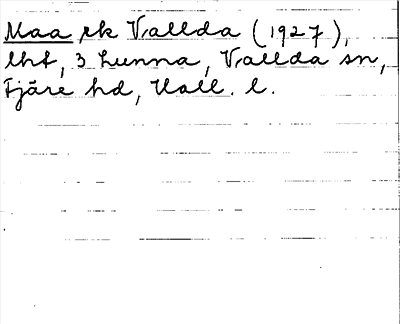 Maa, rk Vallda (1927),
lht, 3 Lunna, Vallda sn,
Fjäre hd, Hall. l.